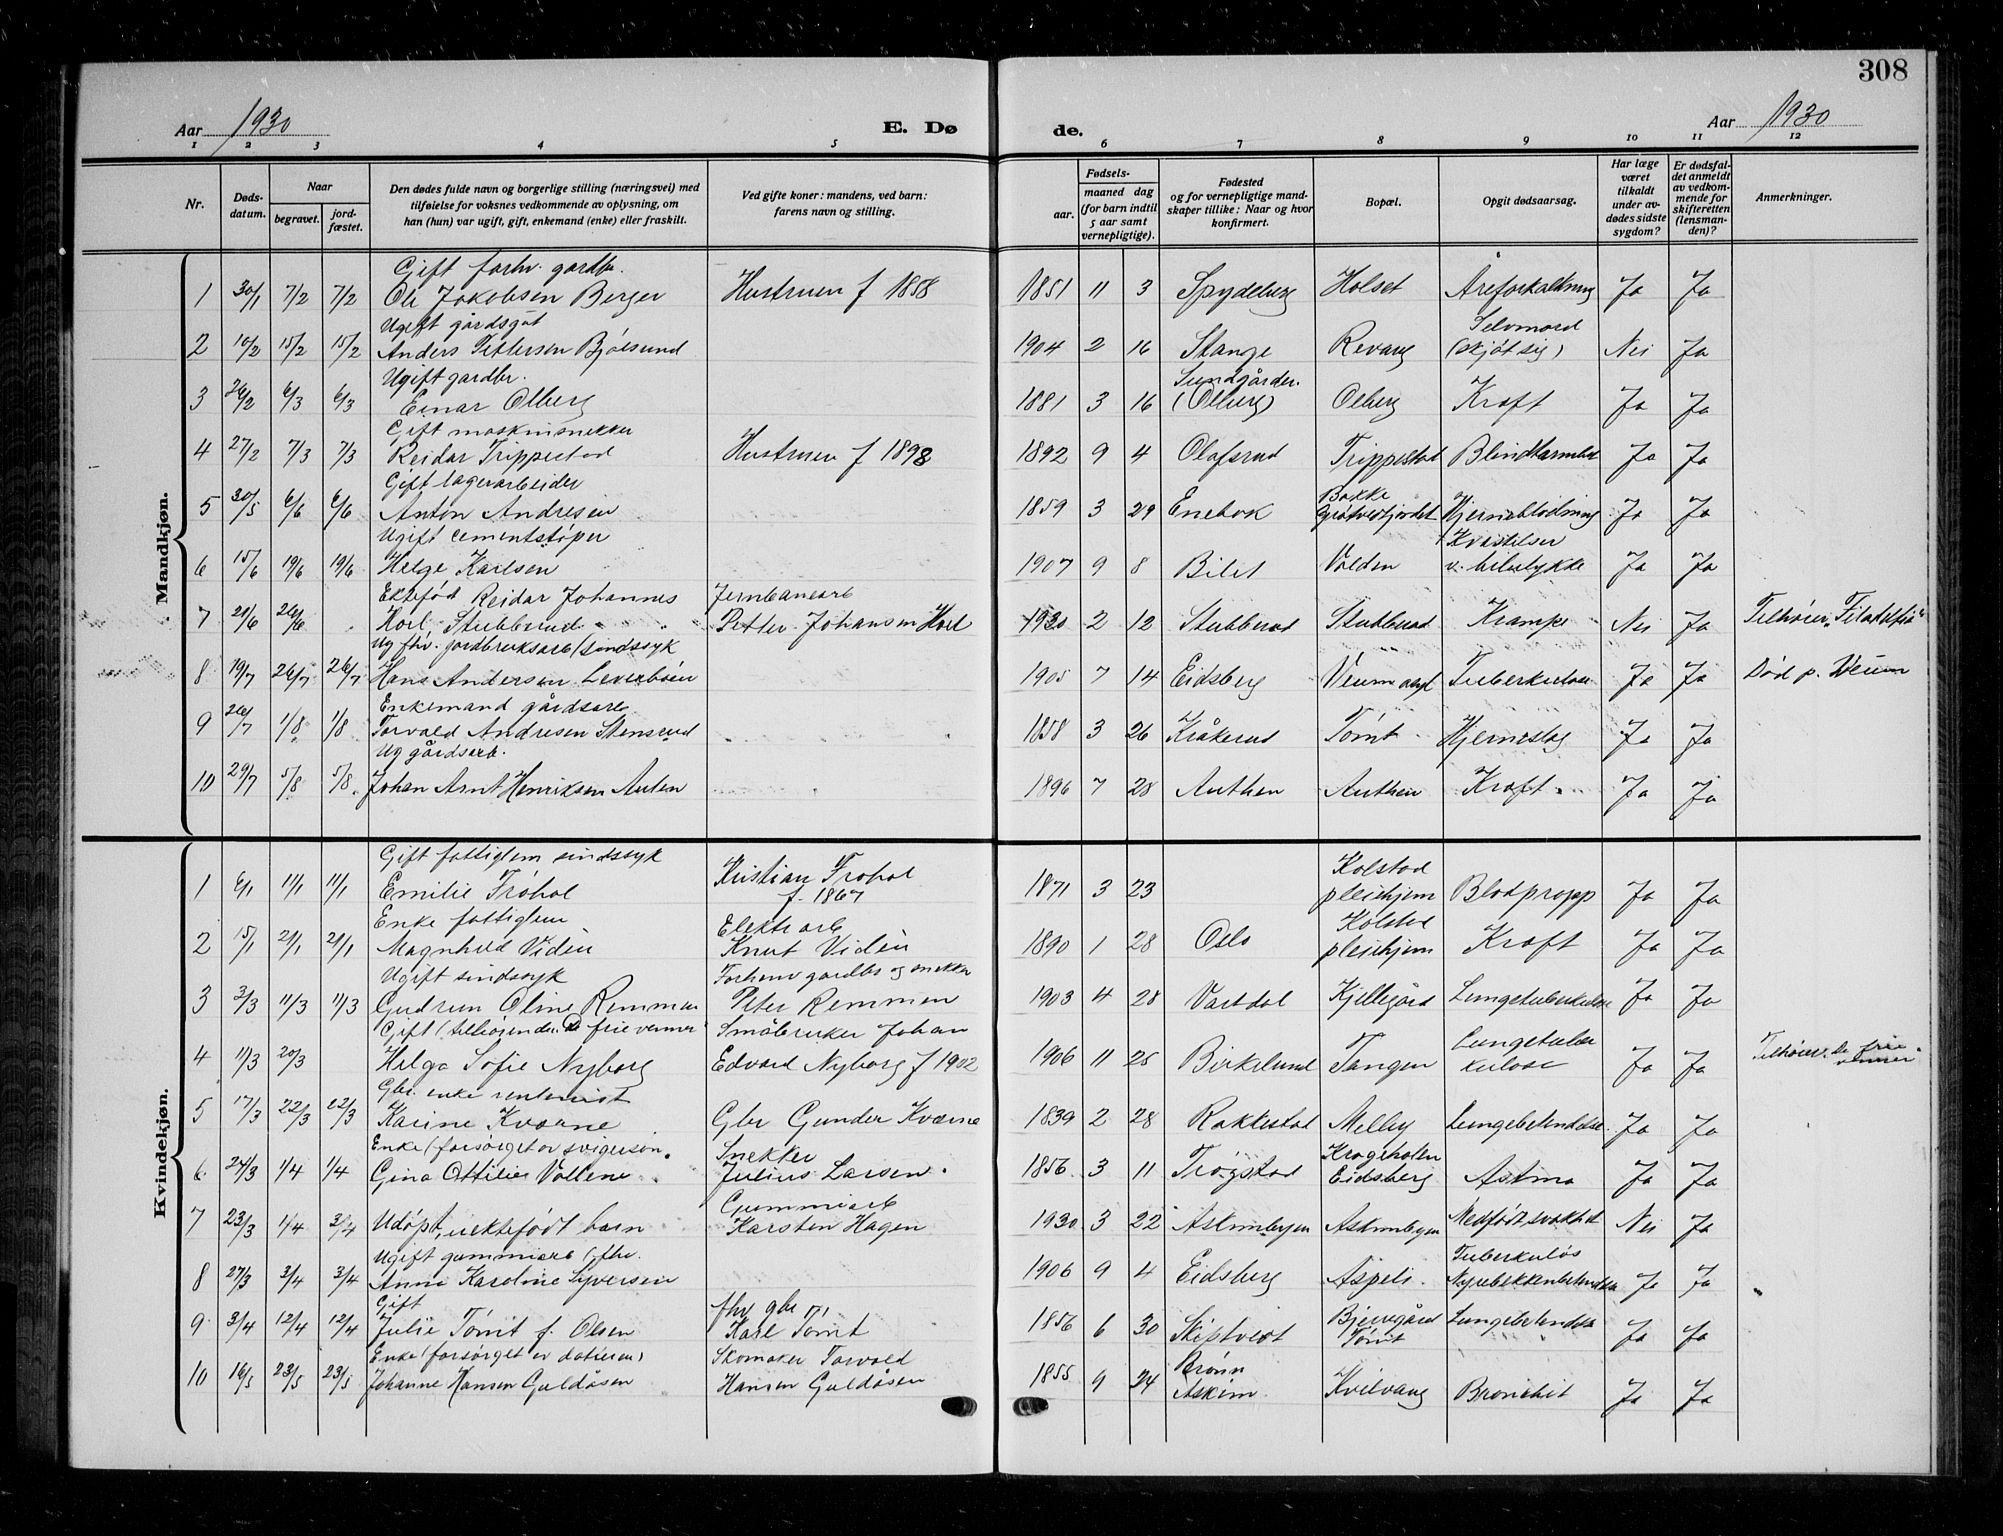 308
Aar 1930 E. Dø de. Aar 1930
1 2 3 4 5 6 7 8 9 10 11 12
Nr. Døds-datum. Naar begravet. jord-fæstet. Den dødes fulde navn og borgerlige stilling (næringsvei) med tilføielse for voksnes vedkommende av oplysning, om han (hun) var ugift, gift, enkemand (enke) eller fraskilt. Ved gifte koner: mandens, ved barn: farens navn og stilling. Fødsels- aar. maaned dag (for barn indtil 5 aar samt vernepligtige). Fødested og for vernepligtige mand-skaper tillike: Naar og hvor konfirmert. Bopæl. Opgit dødsaarsag. Har læge været tilkaldt under av-dødes sidste sygdom? Er dødsfal-det anmeldt av vedkom-mende for skifteretten (lensman-den)? Anmerkninger.
Mandkjøn.
Gift forhv. gardbr.
1 30/1 7/2 7/2 Ole Jakobsen Berger Hustruen f 1858 1851 11 3 Spydeberg Holset Åreforkalkning Ja Ja
Ugift gårdsgut Selvmord
2 10/2 15/2 15/2 Anders Pettersen Bjølsund 1904 2 16 Stange Revaug (skjøt sig) Nei Ja
Ugift gardbr. Sundgården
3 26/2 6/3 6/3 Einar Olberg 1881 3 16 (Olberg) Olberg Kræft Ja Ja
Gift maskinsnekker
4 27/2 7/3 7/3 Reidar Trippestad Hustruen f 1898 1892 9 4 Olafsrud Trippestad Blindtarmbet Ja Ja
Gift lagerarbeider Bakke
5 30/5 6/6 6/6 Anton Andresen 1859 3 29 Enebak Grøtvedtjordet Hjerneblødning Ja Ja
Ugift cementstøper Kvæstelser
6 15/6 19/6 19/6 Helge Karlsen 1907 9 8 Bilit Volden v. bilulykke Ja Ja
Ektefød Reidar Johannes Jernbanearb
7 21/6 26/6 Hoel Stubberud Petter Johansen Hoel 1930 2 12 Stubberud Stubberud Krampe Nei Ja Tilhører „Filadelfia"
Ug fhv. jordbruksarb (sindssyk
8 19/7 26/7 26/7 Hans Andersen Leverbøen 1905 7 14 Eidsberg Veum asyl Tuberkulose Ja Ja Død p. Veum
Enkemand gårdsarb
9 26/7 1/8 1/8 Torvald Andresen Stensrud 1858 3 26 Kråkerud Tømt Hjerneslag Ja Ja
Ug gårdsarb.
10 29/7 5/8 5/8 Johan Arnt Henriksen Auten 1896 7 28 Authen Authen Kræft Ja Ja
Kvindekjøn.
Gift fattiglem sindssyk Kristian Trøhol Kolstad
1 6/1 11/1 11/1 Emilie Trøhol f. 1867 1871 3 23 pleiehjem Blodpropp Ja Ja
Enke fattiglem Elektr arb Kolstad
2 15/1 21/1 21/1 Magnhild Vidén Knut Vidén 1890 1 28 Oslo pleiehjem Kræft Ja Ja
Ugift sindssyk Forhenv gardbr og snekker
3 3/3 11/3 11/3 Gudrun Oline Remmen Peter Remmen 1903 4 28 Vartdal Kjellegård Lungetuberkulose Ja Ja
Gift (tilhørende De frie venner Småbruker Johan Lungetuber
4 11/3 20/3 Helga Sofie Nyborg Edvard Nyborg f 1902 1906 11 25 Birkelund Tangen kulose Ja Ja Tilhører De frie venner
Gbr. enke rentenist
5 17/3 22/3 22/3 Karine Kværne Gbr Gunder Kværne 1839 2 28 Rakkestad Melby Lungebetendelse Ja Ja
Enke (forsørget av svigersøn. Snekker Krageholen
6 24/3 1/4 1/4 Gina Ottilie Vollene Julius Larsen 1856 3 11 Trøgstad Eidsberg Astma Ja Ja
Gummiarb
7 23/3 1/4 3/4 Udøpt, uektefødt barn Karsten Hagen 1930 3 22 Askimbyen Askimbyen Medfødt svakhet Nei Ja
Ugift gummiarb (fhv. Tuberkuløs
8 27/3 3/4 3/4 Anna Karoline Syversen 1906 9 4 Eidsberg Aspeli Nyrebekkenbetendelse Ja Ja
Gift fhv gbr Bjerregård
9 3/4 12/4 12/4 Julie Tømt f. Olsen Karl Tømt 1856 6 30 Skiptvedt Tømt Lungebetendelse Ja Ja
Enke (forsørget av datteren) Skomaker Torvald Brønn
10 16/5 23/5 23/5 Johanne Hansen Guldåsen Hansen Guldåsen 1855 9 24 Askim Kvilvang Bronchit Ja Ja